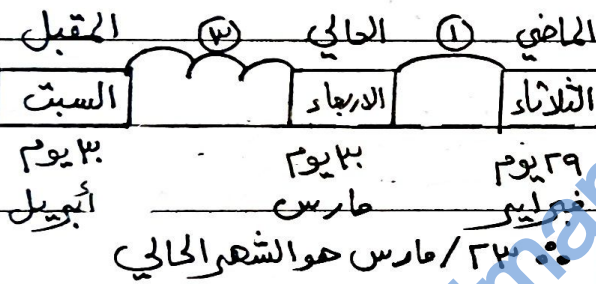 الماضي ١ الحالي ٣ المقبل
الثلاثاء الاربعاء السبت
٢٩ يوم ٣٠ يوم ٣٠ يوم
فبراير مارس أبريل
∴ ٢٣ / مارس هو الشهر الحالي